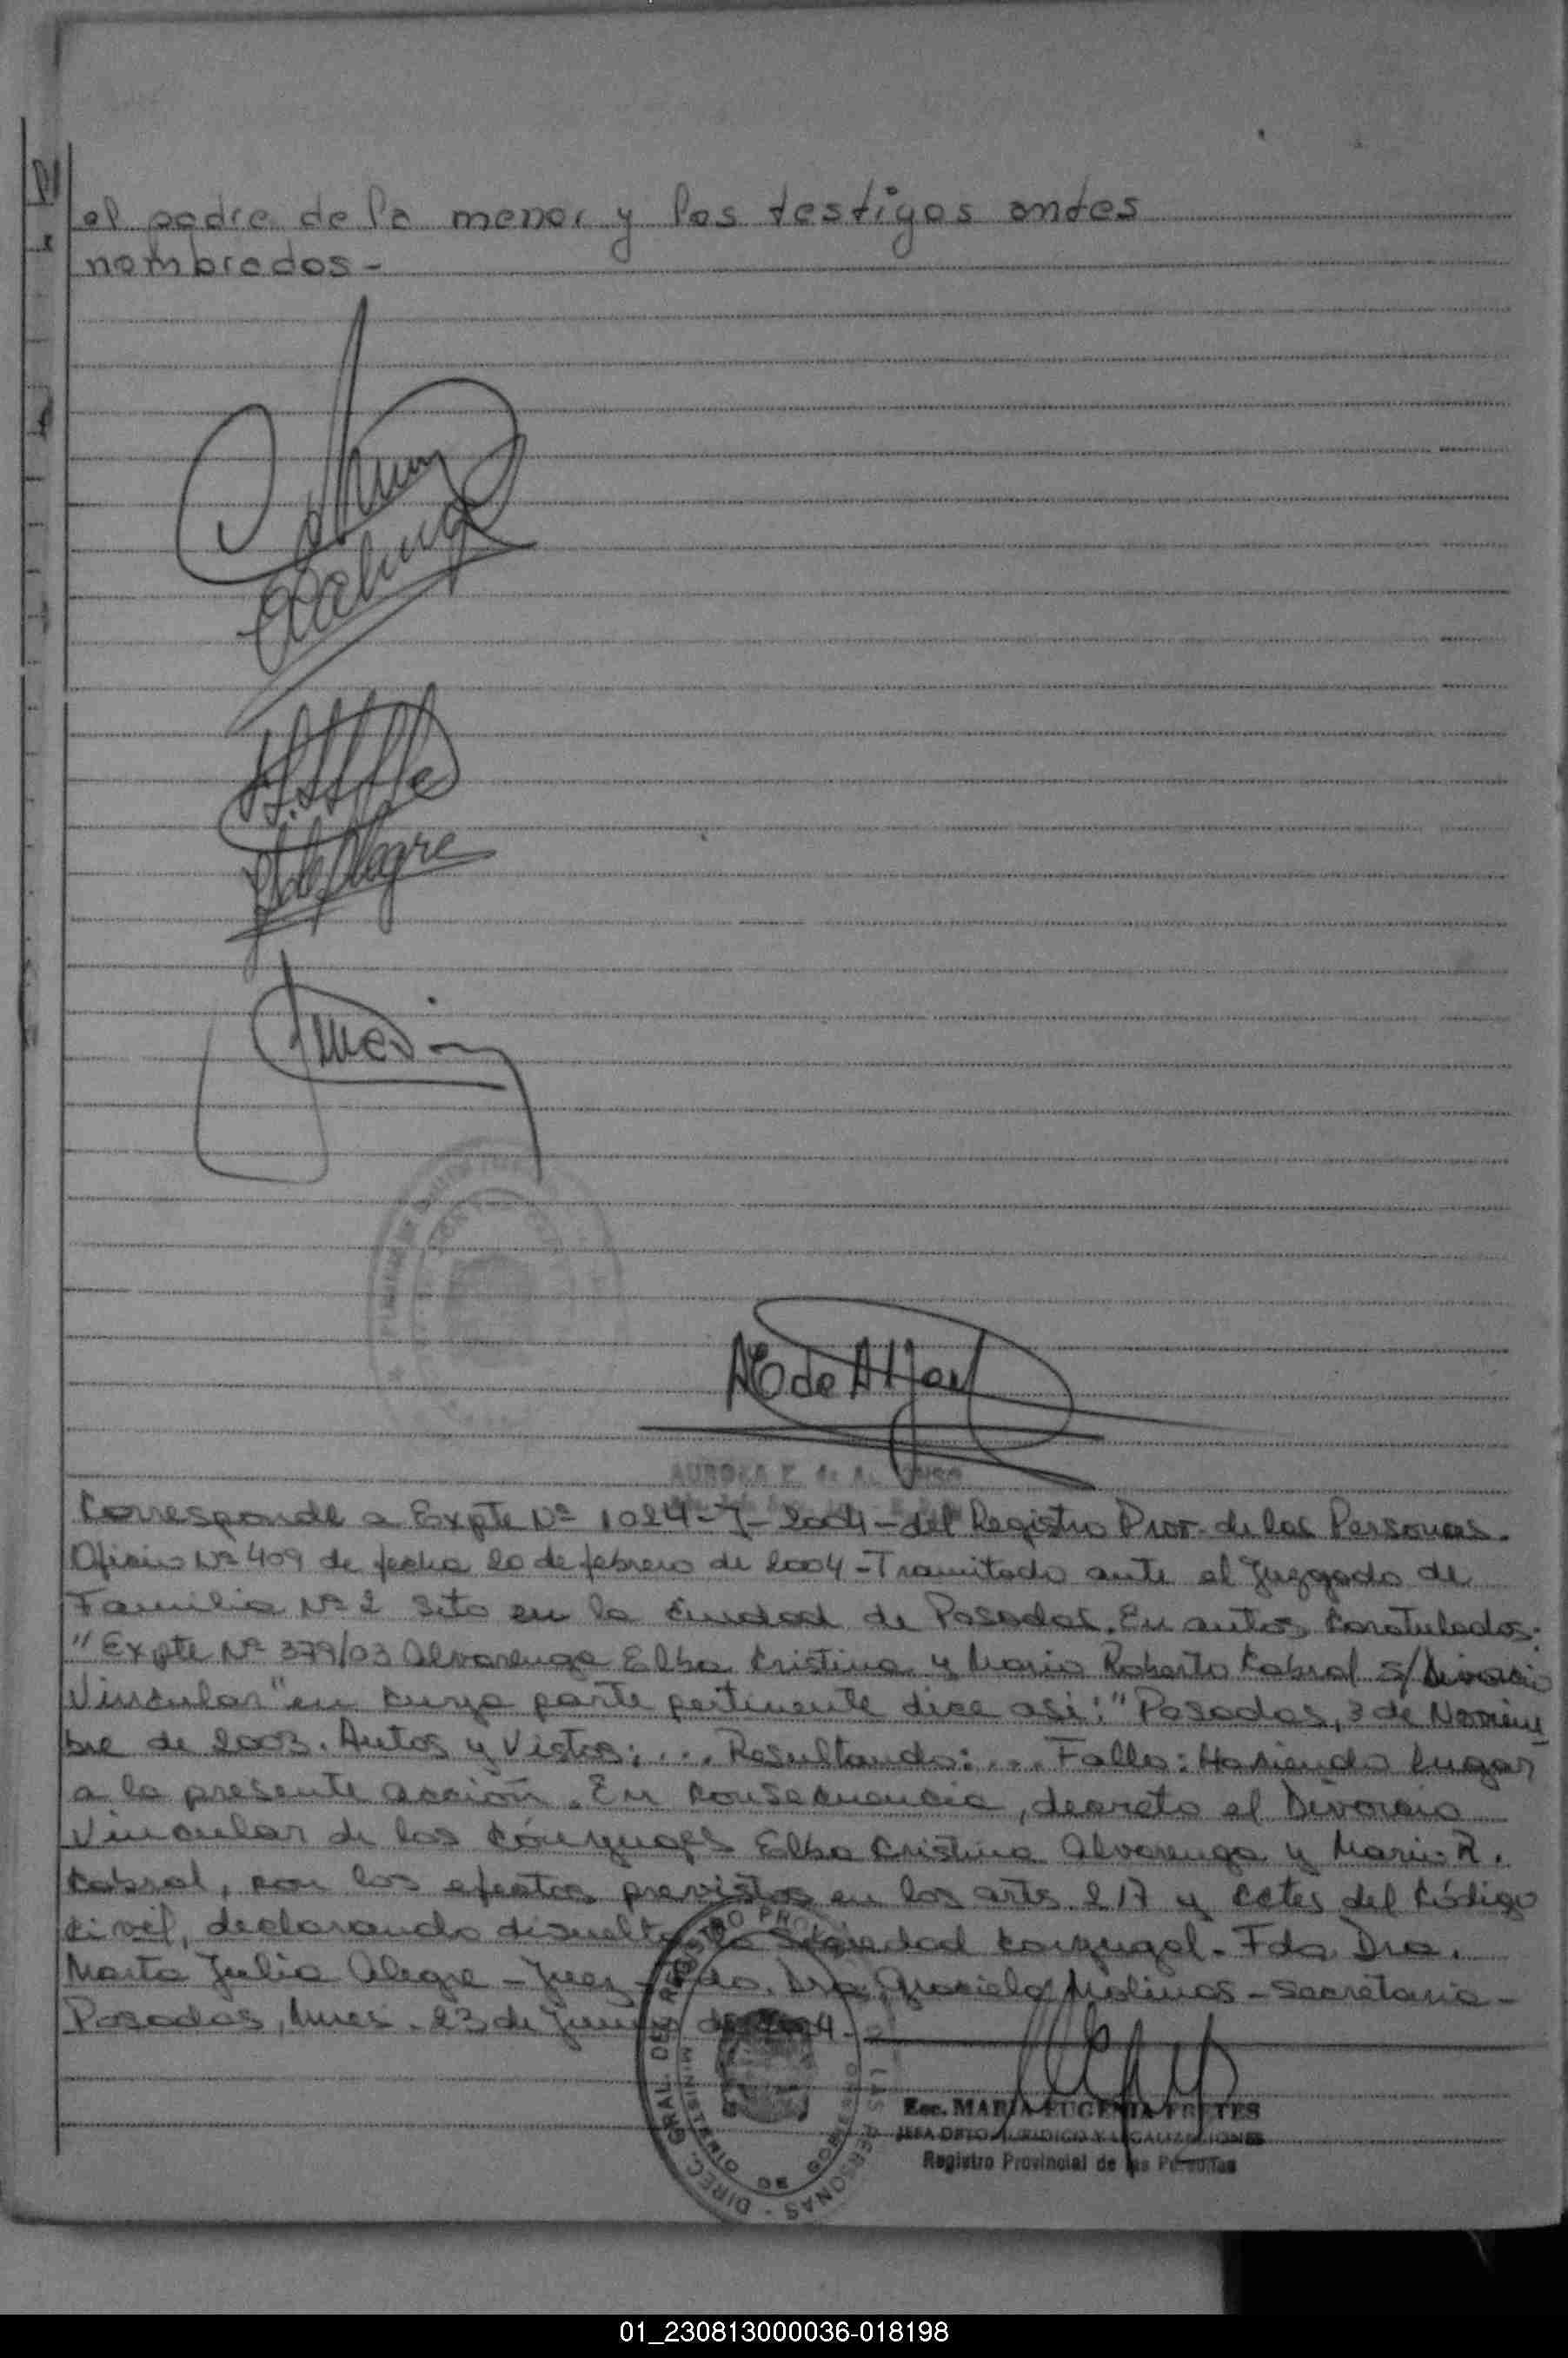 el padre de la menor y los testigos antes
nombrados-
Alegre
AE de Alfonso
AURORA E. de ALFONSO
Corresponde a Expte Nº 1024-J-2004-del Registro Prov. de las Personas.
Oficio Nº 409 de fecha 20 de febrero de 2004-Tramitado ante el Juzgado de
Familia Nº 2 sito en la ciudad de Posadas. En autos caratulados:
"Expte Nº 379/03 Alvarenga Elba Cristina y Mario Roberto Cabral s/Divorcio
Vincular" en cuya parte pertinente dice asi: "Posadas, 3 de Noviem
bre de 2003. Autos y Vistos: ... Resultando: ... Fallo: Haciendo lugar
a la presente acción. En consecuencia, decreto el Divorcio
Vincular de los cónyuges Elba Cristina Alvarenga y Mario R.
Cabral, con los efectos previstos en los arts 217 y cctes del Código
Civil, declarando disuelta la Sociedad conyugal. Fdo. Dra.
Marta Julia Alegre - Juez - Fdo. Dra. Graciela Molinas - Secretaria -
Posadas, Mnes. 23 de Junio de 2004.-
DIREC. GRAL. DEL REGISTRO PROV. DE LAS PERSONAS
MINISTERIO DE GOBIERNO
Esc. MARIA EUGENIA FRETES
JEFA DPTO. JURIDICO Y LEGALIZACIONES
Registro Provincial de las Personas
01_230813000036-018198